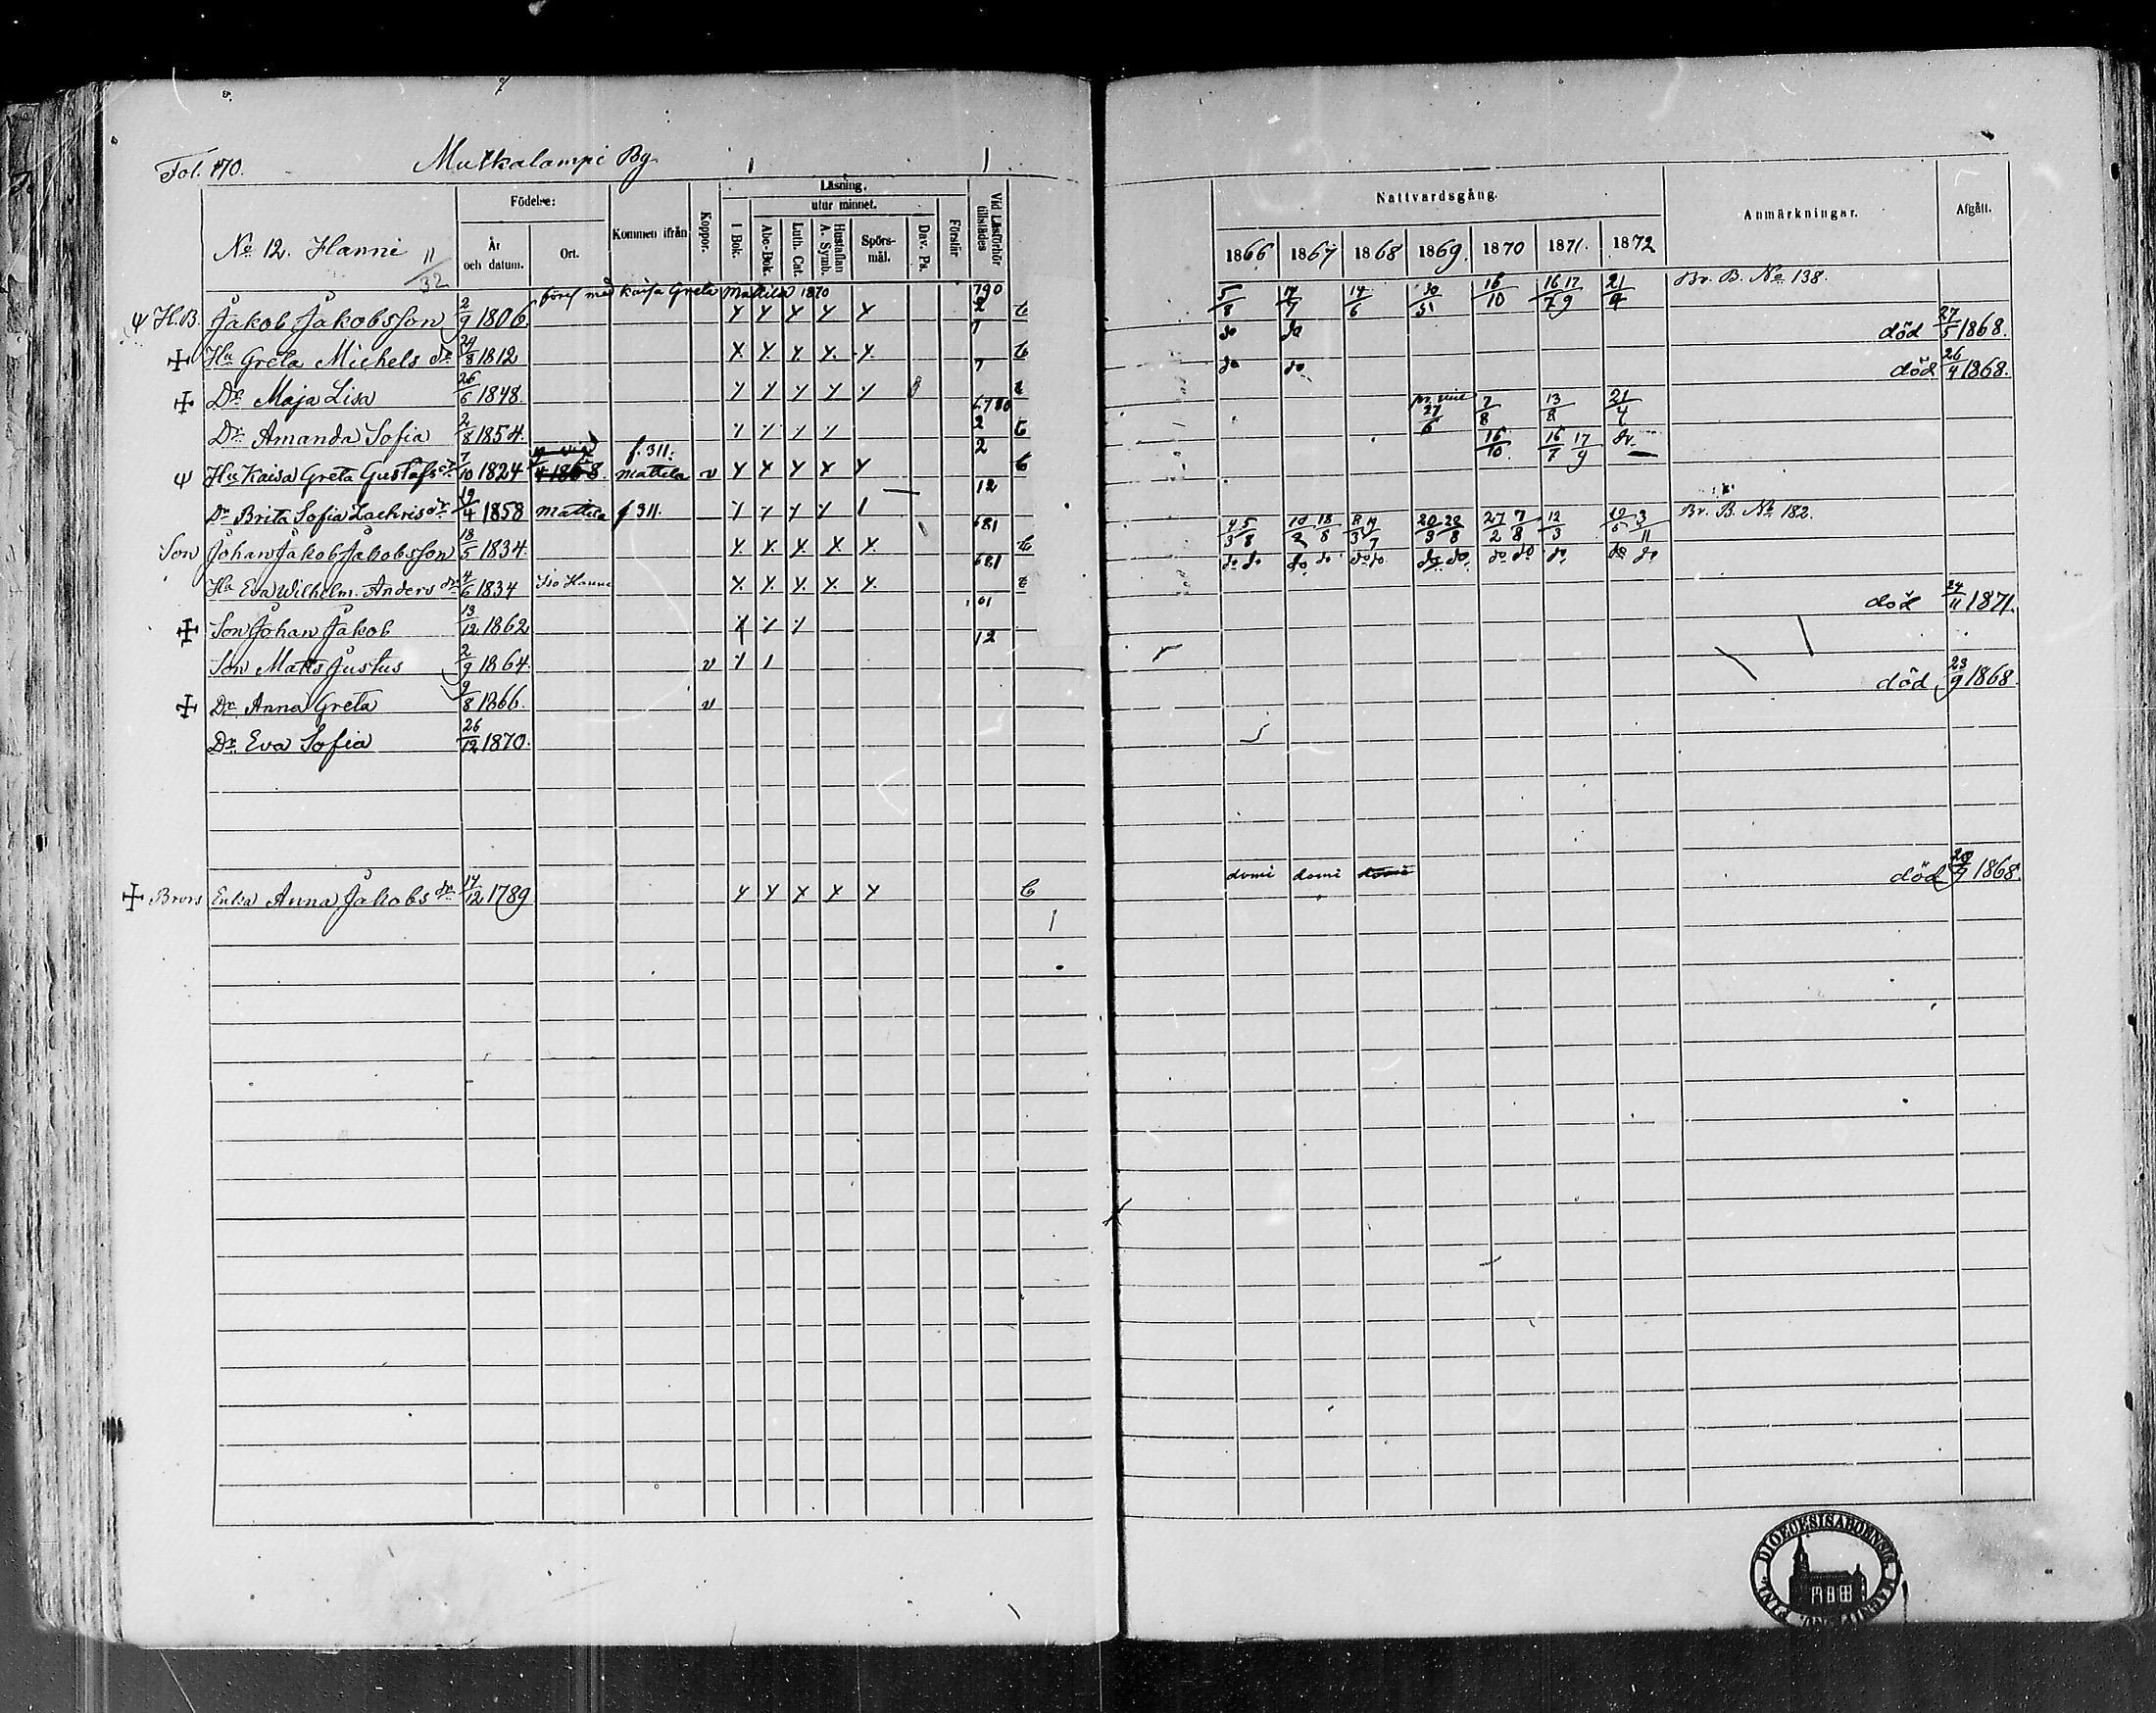 Fol. 170. Mutkalampi By.
Födelse: Läsning. Nattvardsgång.
No 12. Hanni 11/32 År och datum. Ort. Kommen ifrån Koppor. I Bok. utur minnet. Abc-Bok. Luth. Cat. Hustaflan A. Symb. Spörs-mål. Dav. Ps. Förstår Vid Läsförhör tillstädes 1866 1867 1868 1869 1870 1871. 1872 Anmärkningar. Afgått.
med Kaisa Greta Mattila 1870
H.B. Jakob Jakobsson 2/9 1806 x x x x x 790 2 5/8 17/7 14/6 16/10 16/7 17/9 21/4 Br. B. No 138.
Hu Greta Michels dr 24/8 1812 x x x x x 7 do do död 27/5 1868.
Dr Maja Lisa 26/6 1848. 7 do do död 26/4 1868.
Dr Amanda Sofia 2/8 1854. 2 27/6 7/8 13/8 21/4
f. 311.
Hu Kaisa Greta Gustafs dr 7/10 1824 Mattila v x x x x x 2 16/10. 16/7 17/9
Dr Brita Sofia Zachris dr 19/4 1858 Mattila f 311. 12
Son Johan Jakob Jakobsson 18/5 1834. x x x x x 681 4/3 5/8 27/2 7/8 12/3 Br. B. No 182.
Hu Eva Wilhelm. Anders dr 4/6 1834 Iso Hanni x x x x x 681 do do do do do do do do do do do do do
Son Johan Jakob 13/12 1862 61 död 24/11 1871.
Son Matts Justus 2/9 1864. v 12
Dr Anna Greta 9/8 1866. v död 23/9 1868.
Dr Eva Sofia 26/12 1870.
Brors Enka Anna Jakobs dr 14/12 1789 x x x x x domi domi domi död 1868.
DIOECESIS ABOENSIS MAGNI DUC. FINL.